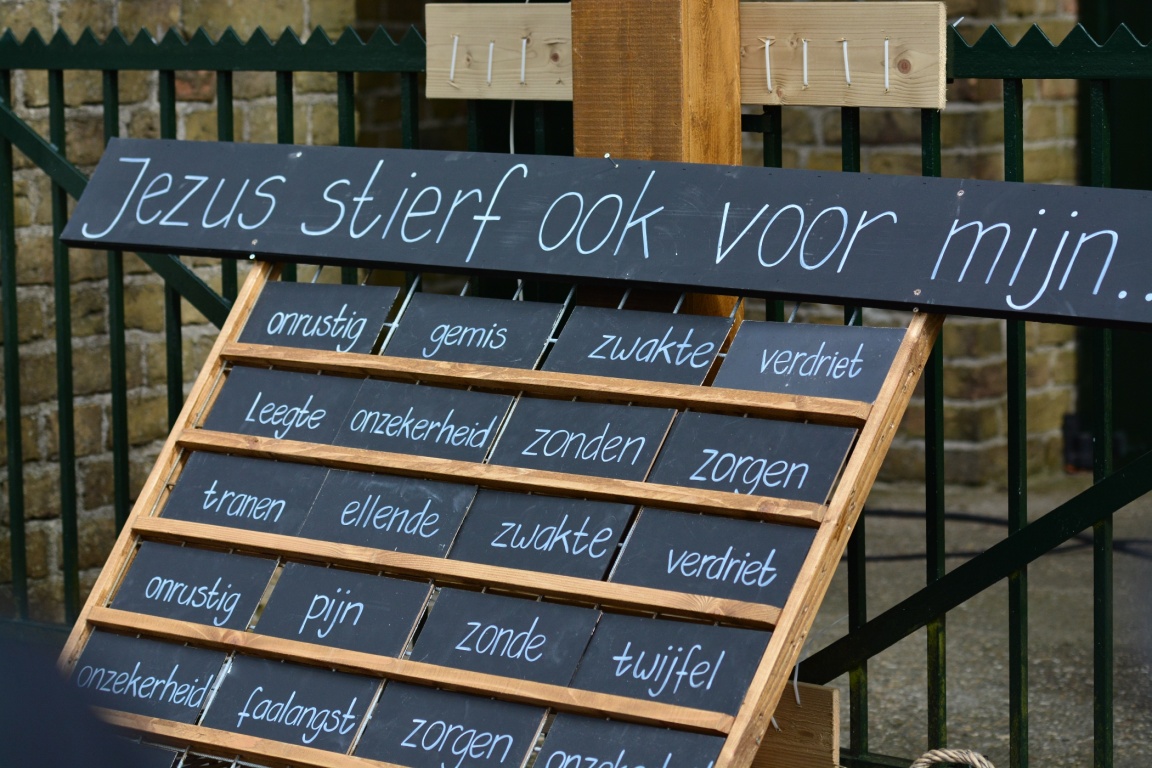 Jezus stierf ook voor mijn..
onrustig gemis zwakte verdriet
Leegte onzekerheid zonden zorgen
tranen ellende zwakte verdriet
onrustig pijn zonde twijfel
onzekerheid faalangst zorgen